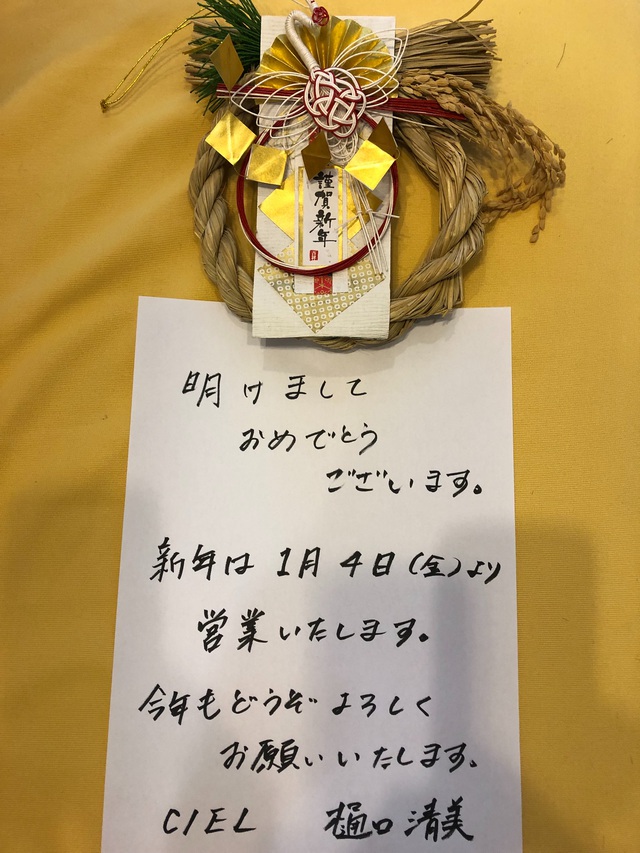 謹賀新年
明けまして
おめでとう
ございます。
新年は 1月4日(金)より
営業いたします。
今年もどうぞよろしく
お願いいたします。
CIEL 樋口清美